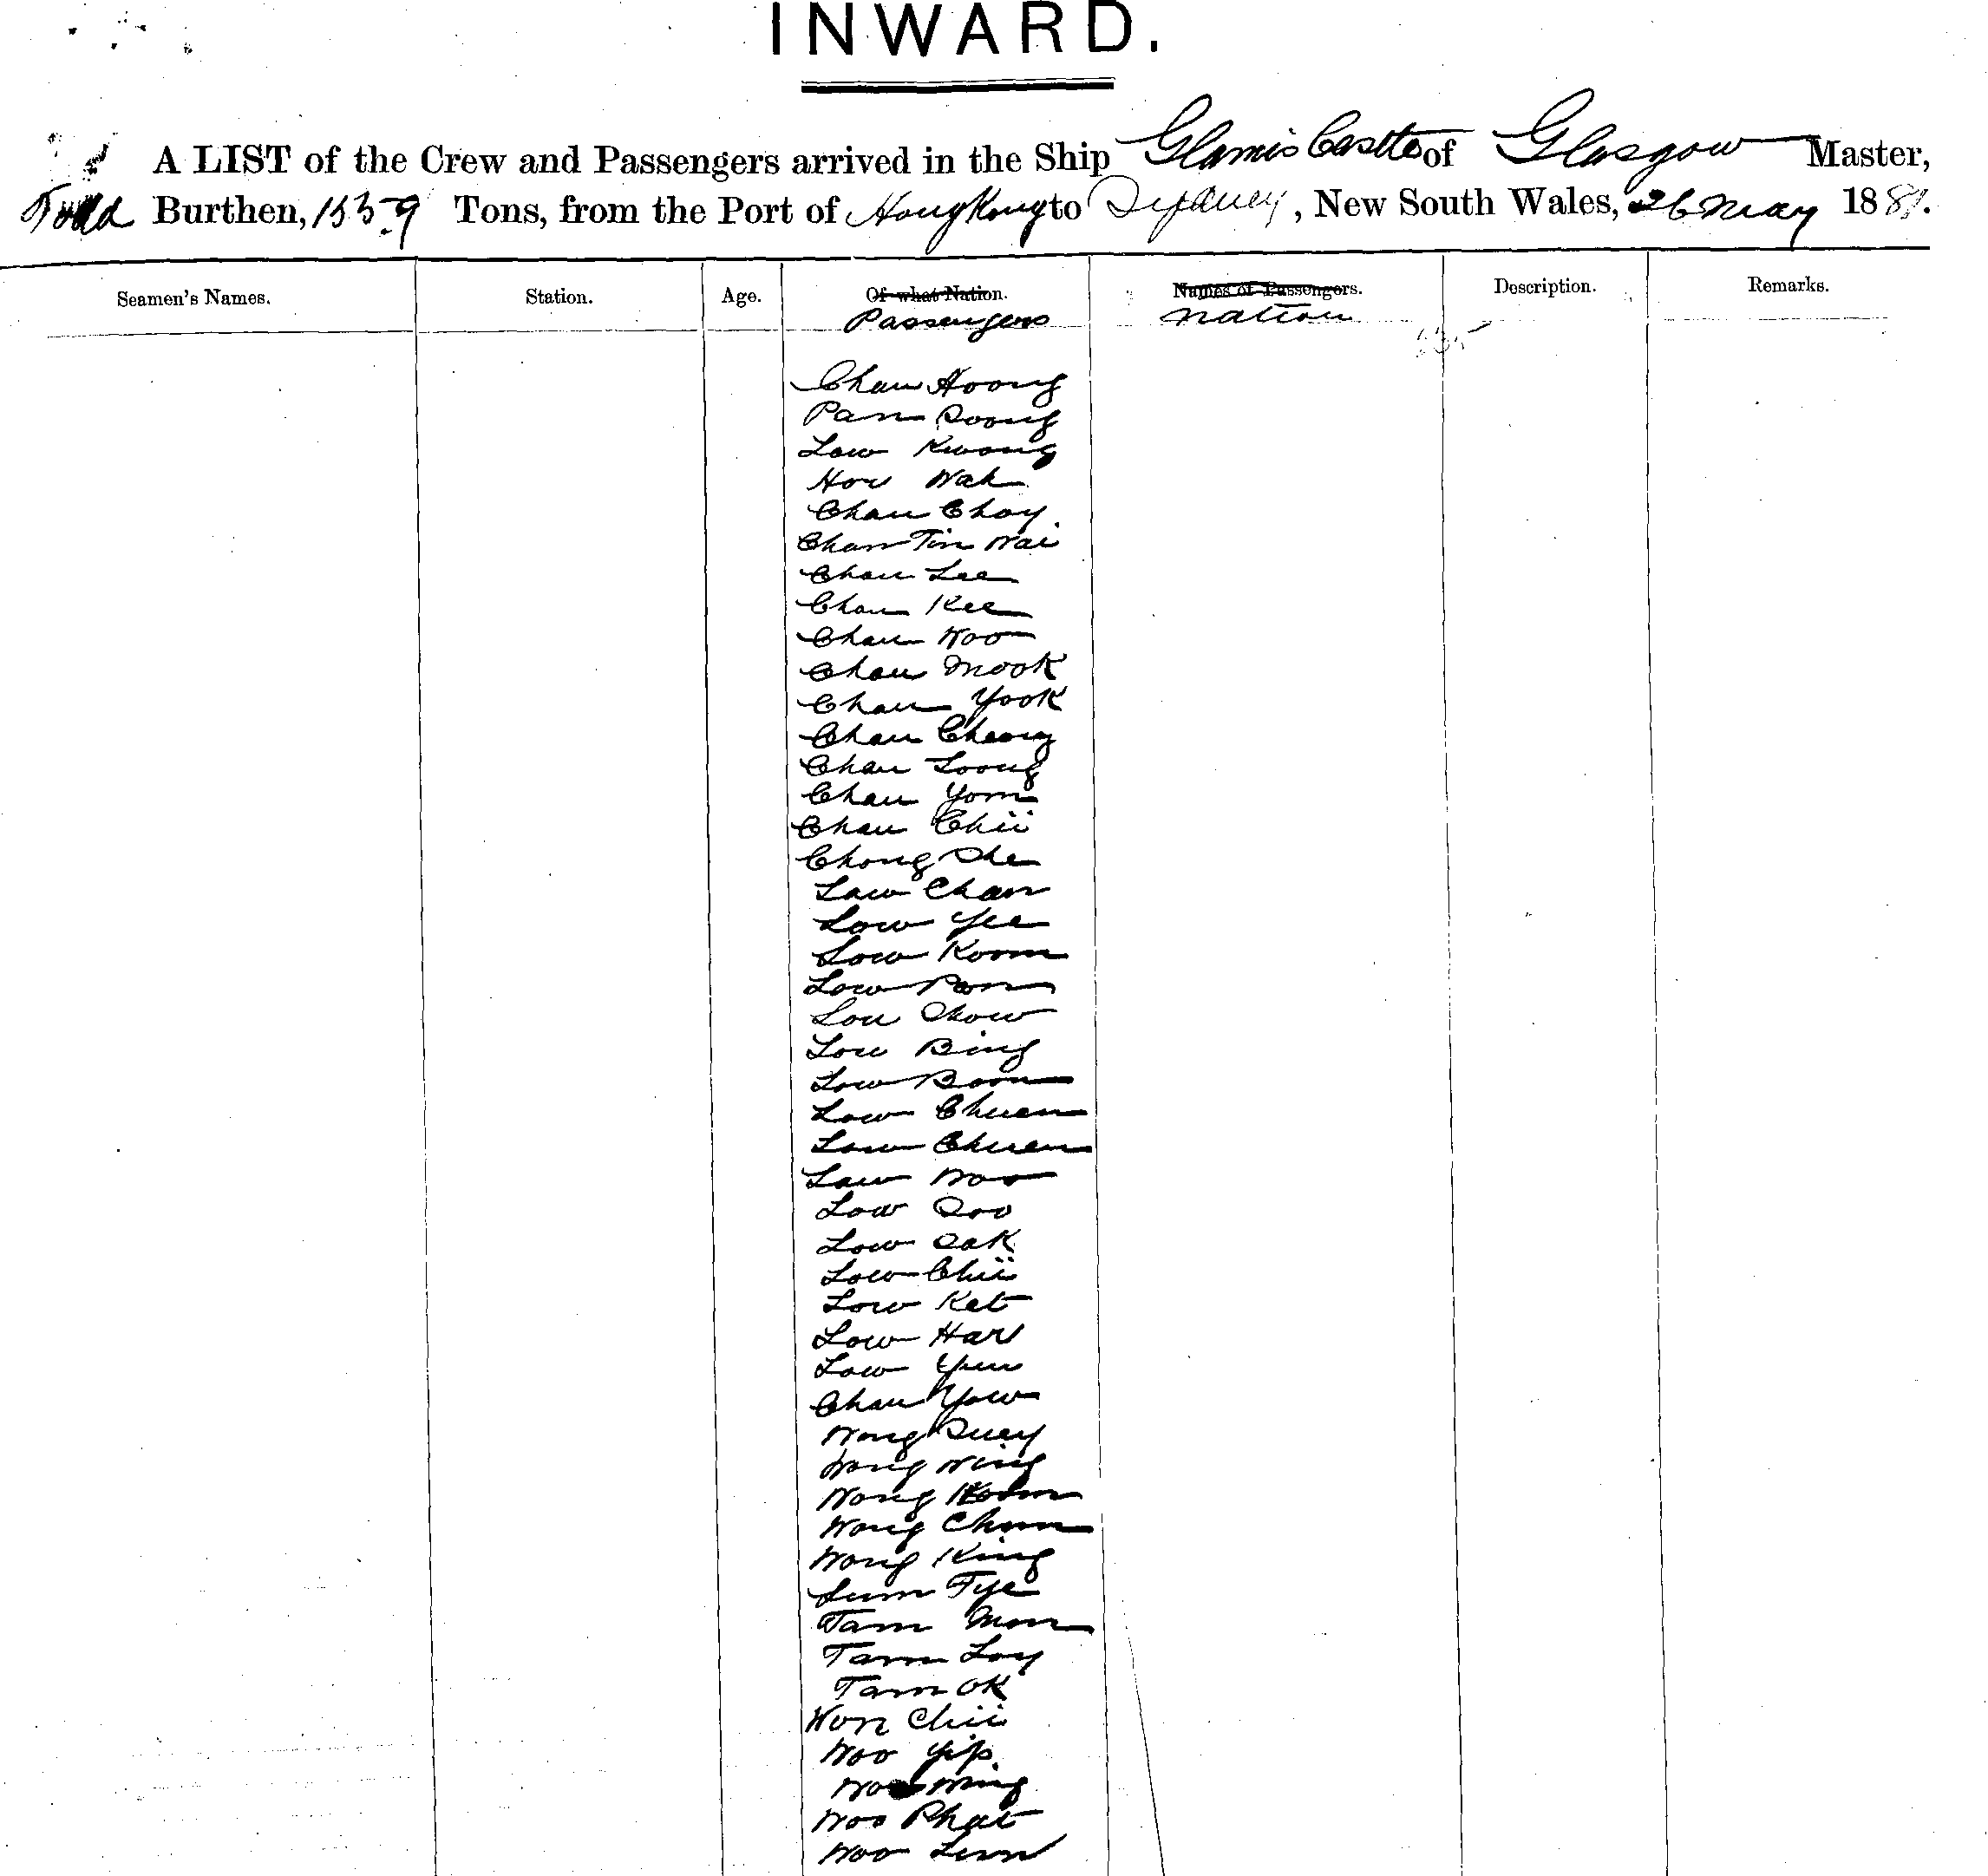 INWARD.
A LIST of the Crew and Passengers arrived in the Ship Glamis Castle of Glasgow Master,
Todd Burthen, 1559 Tons, from the Port of Hong Kong to Sydney, New South Wales, 26 May 1881.
Seamen's Names. Station. Age. Of what Nation. Names of Passengers. Description. Remarks.
Passengers nation
Chan Hoong
Pan Soong
Low Kwong
How Wah
Chan Choy
Chan Tin Wai
Chan Lee
Chan Kee
Chan Woo
Chan Mook
Chan Yook
Chan Cheong
Chan Loong
Chan Yom
Chan Chii
Chong She
Law Chan
Low Yee
Low Koom
Low Pon
Low Chow
Low Bing
Low Boon
Low Chuen
Low Chuen
Law Woo
Low Soo
Low Sak
Low Chii
Low Ket
Low Har
Low Yuu
Chan Yow
Wong Quey
Wong Wing
Wong Koom
Wong Chun
Wong King
Lum Tye
Tam Mon
Tam Loy
Tam Ok
Won Chii
Woo Yip
Woo Ming
Woo Phat
Woo Lun